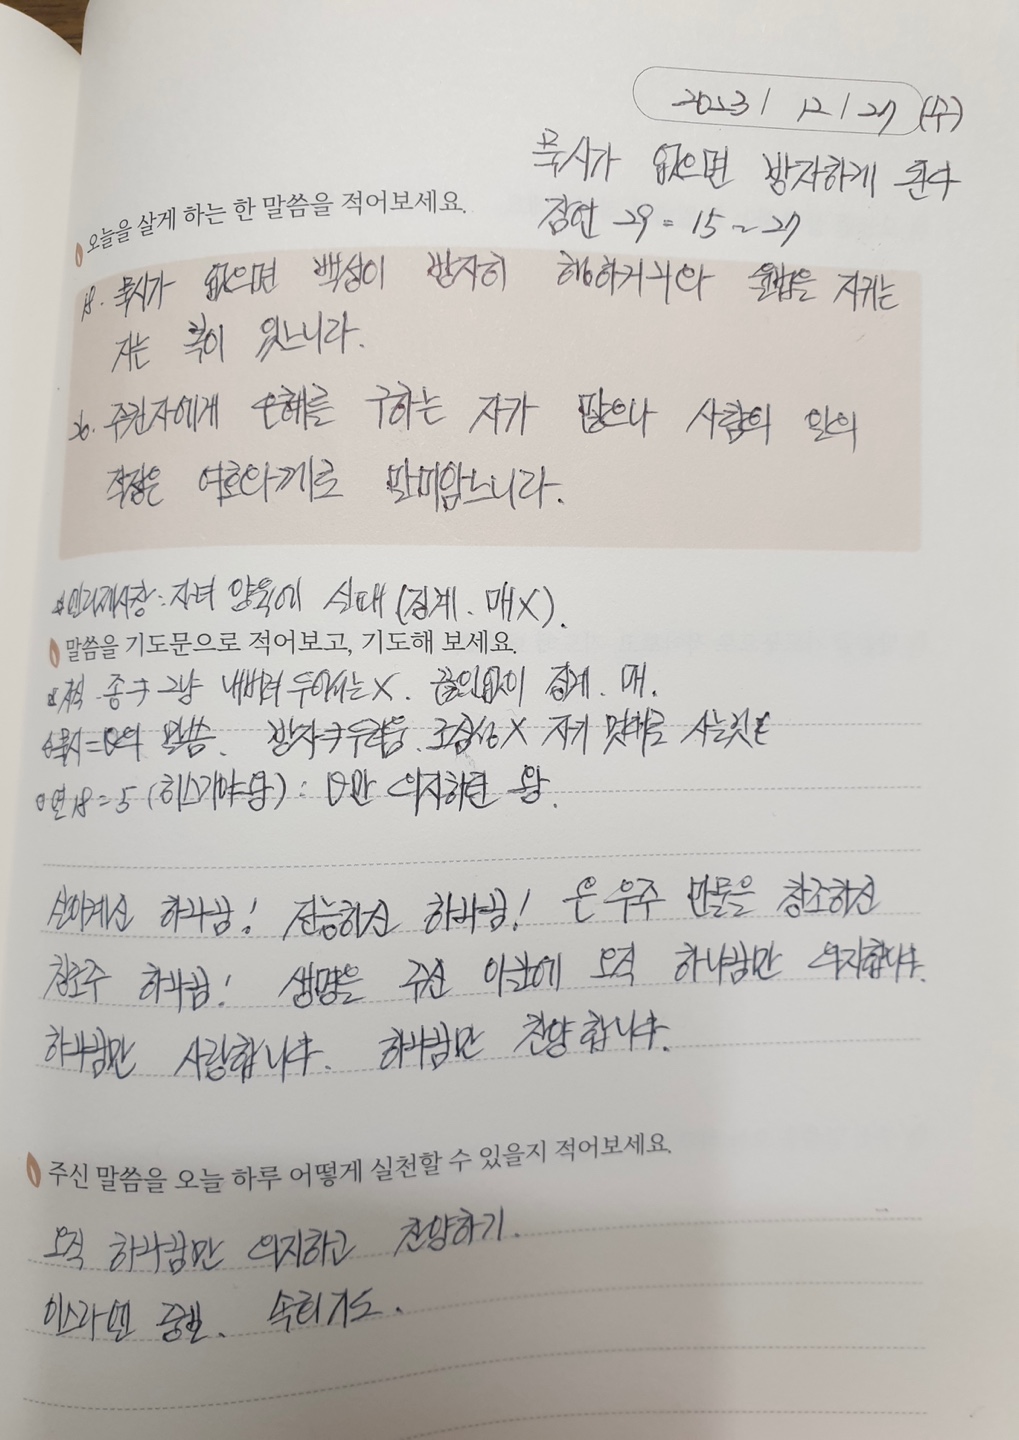 2023 / 12 / 27 (수)
묵시가 없으면 방자하게 한다
잠언 29 = 15 ~ 27
오늘을 살게 하는 한 말씀을 적어보세요.
18. 묵시가 없으면 백성이 방자히 행하거니와 율법을 지키는
자는 복이 있느니라.
26. 주권자에게 은혜를 구하는 자가 많으나 사람의 일의
작정은 여호와께로 말미암느니라.
*엘리제사장 : 자녀 양육에 실패 (징계. 매X).
말씀을 기도문으로 적어보고, 기도해 보세요.
종 → 그냥 내버려 두어서는 X. 끊임없이 징계. 매.
묵시 = 의 말씀. 방자 → 두려움. 조심성 X 자기 멋대로 사는 것
18 = 5 (히스기야왕) : 만 의지하던 왕.
살아계신 하나님! 전능하신 하나님! 온 우주 만물을 창조하신
창조주 하나님! 생명을 주신 이 날에 오직 하나님만 의지합니다.
하나님만 사랑합니다. 하나님만 찬양합니다.
주신 말씀을 오늘 하루 어떻게 실천할 수 있을지 적어보세요.
오직 하나님만 의지하고 찬양하기.
이스라엘 중보. 속회 기도.